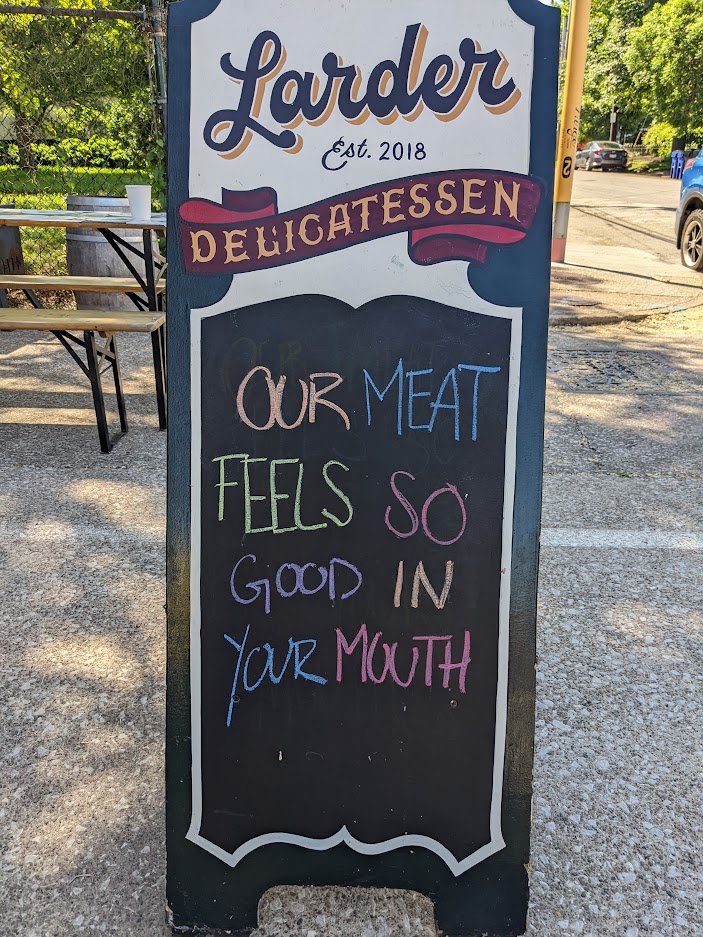 Larder
Est. 2018
DELICATESSEN
OUR MEAT
FEELS SO
GOOD IN
YOUR MOUTH